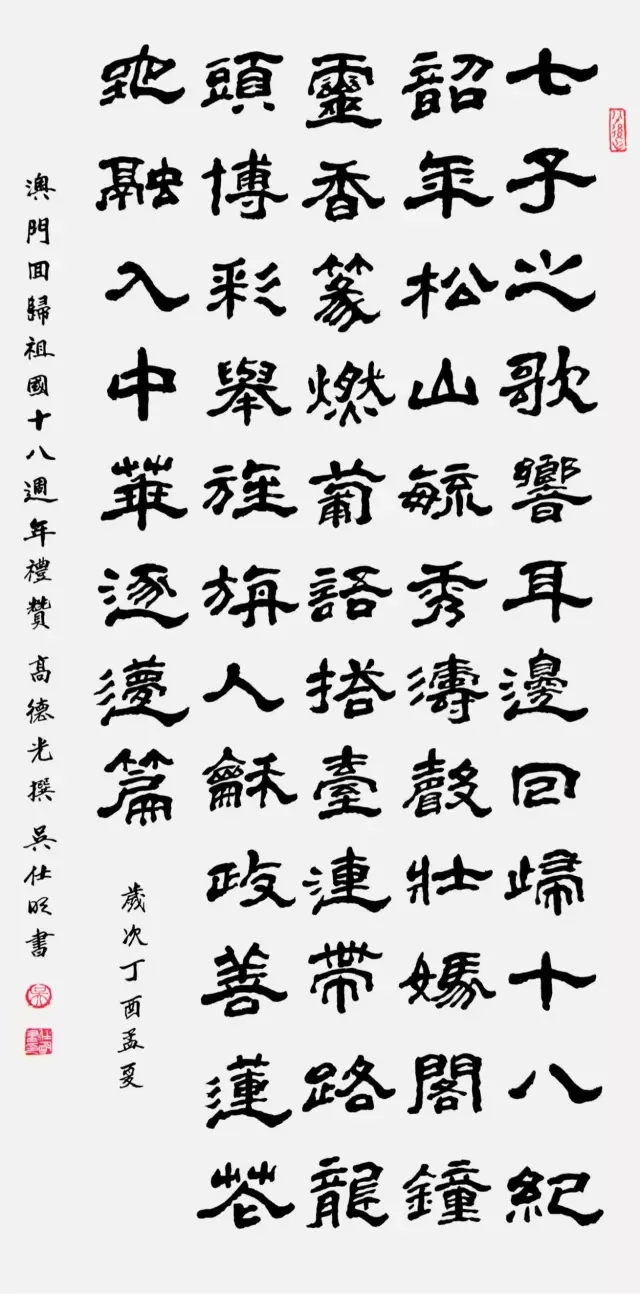 七子之歌響耳邊回歸十八紀
韶年松山毓秀濤聲壯媽閣鐘
靈香篆燃葡語搭臺連帶路龍
頭博彩舉旌旃人龢政善蓮花
地融入中華逐夢篇
歲次丁酉孟夏
澳門回歸祖國十八週年禮贊 高德光撰 吳仕明書